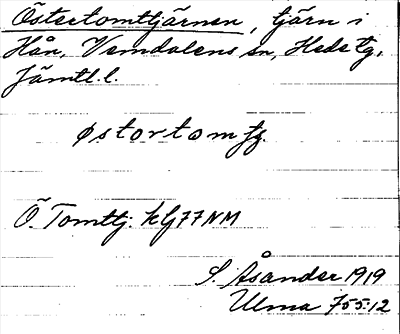 Östertomttjärnen, tjärn i
Hån, Vemdalens sn, Hede tg,
Jämtl. l.
Ö. Tomttj. kg 77 NM
S. Åsander 1919
Ulma 755:12